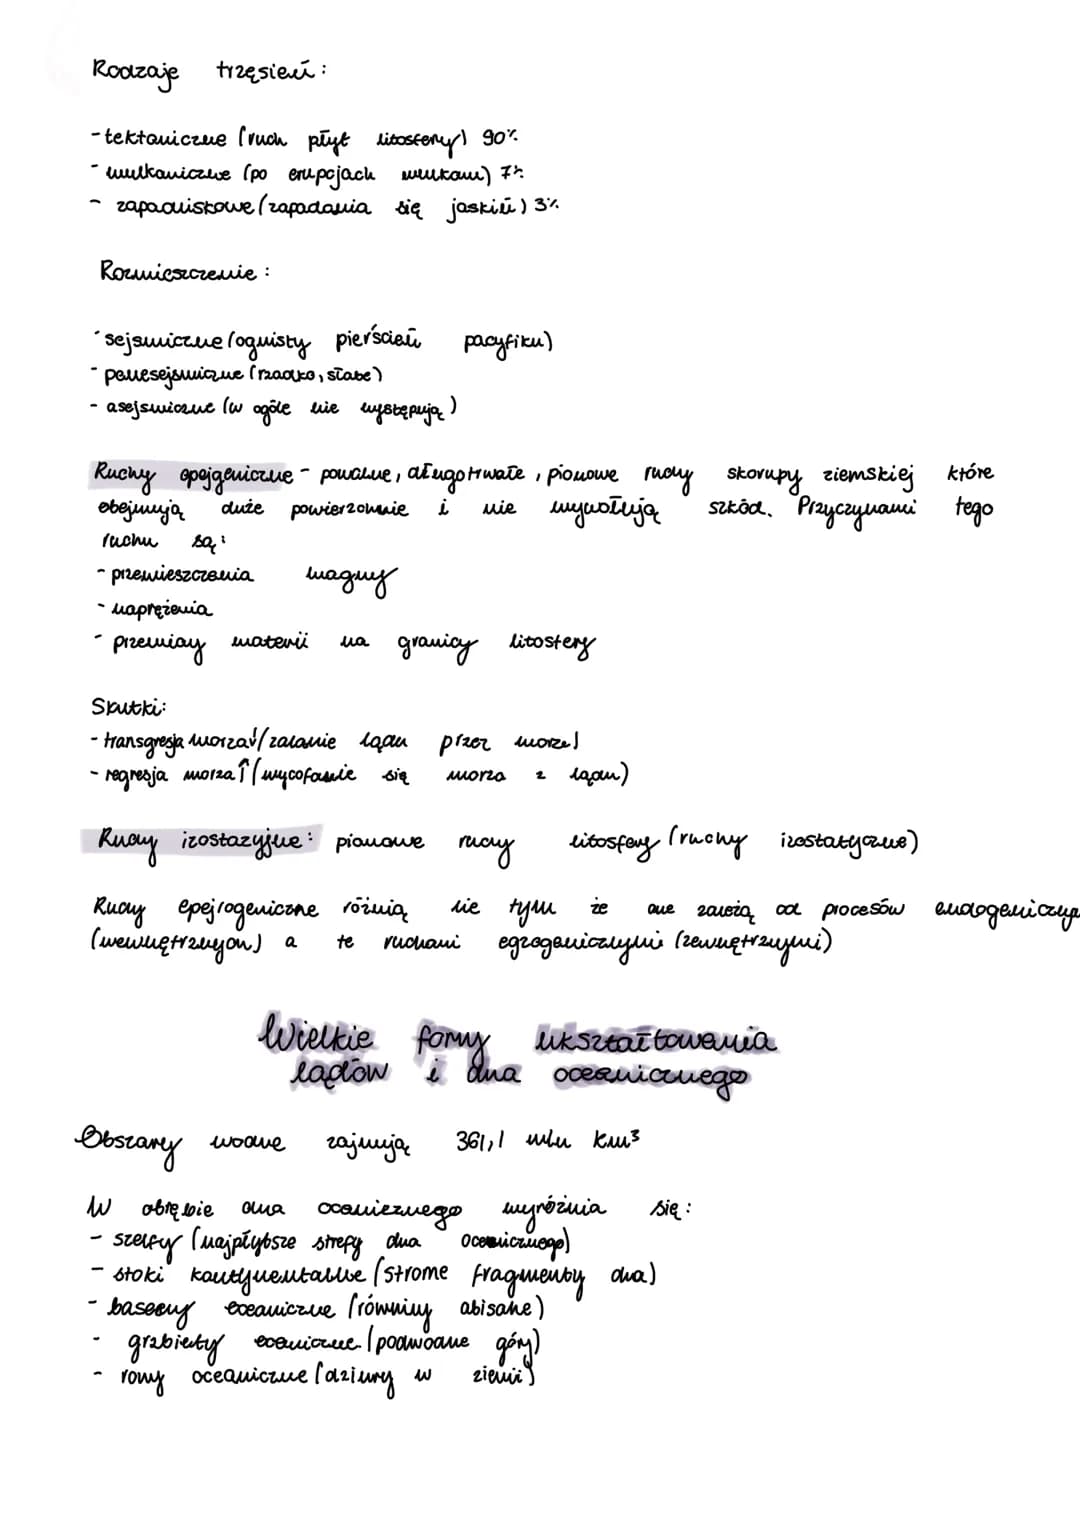 Rodzaje trzęsień:
- tektoniczne (ruch płyt litosfery) 90%
- wulkaniczne (po erupcjach wulkanu) 7%
- zapadliskowe (zapadania się jaskiń) 3%
Rozmieszczenie:
- sejsmiczne (ognisty pierścień pacyfiku)
- penesejsmiczne (rzadko, słabe)
- asejsmiczne (w ogóle nie występują)
Ruchy epejgeniczne - powolne, długotrwałe, pionowe ruchy skorupy ziemskiej które
obejmują duże powierzchnie i nie wywołują szkód. Przyczynami tego
ruchu są:
- przemieszczenia magmy
- naprężenia
- przemiay materii na granicy litosfery
Skutki:
- transgresja morza↓ (zalanie lądu przez morze)
- regresja morza ↑ (wycofanie się morza z lądu)
Ruchy izostazyjne: pionowe ruchy litosfery (ruchy izostatyczne)
Ruchy epejrogeniczne różnią sie tym że one zależą od procesów endogeniczny
(wewnętrznych) a te ruchami egzogenicznymi (zewnętrznymi)
Wielkie formy ukształtowania
lądów i dna oceanicznego
Obszary wodne zajmują 361,1 mln km³
W obrębie dna oceanicznego wyróżnia się:
- szelfy (najpłytsze strefy dna oceanicznego)
- stoki kontynentalne (strome fragmenty dna)
- baseny oceaniczne (równiny abisalne)
- grzbiety oceniczne (podwodne góry)
- rowy oceaniczne (dziury w ziemi)